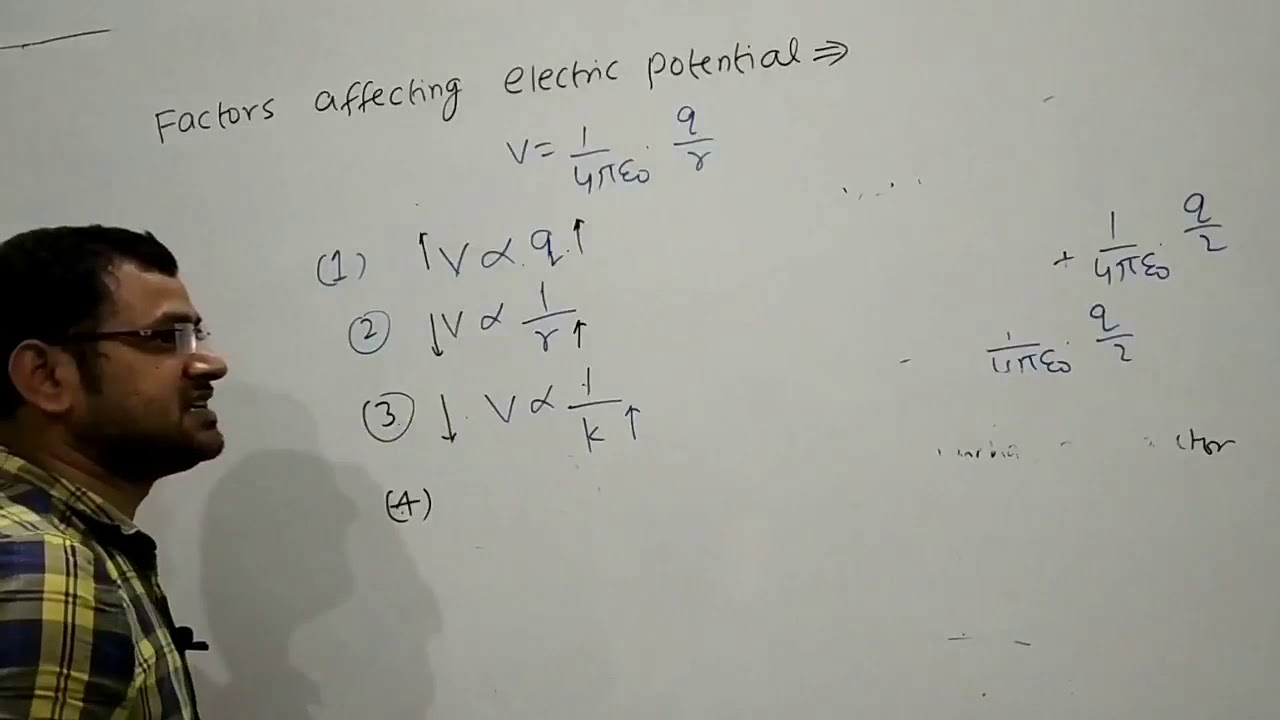 Factors affecting electric potential ⇒
V = 1/4πε0 · q/r
(1) ↑ V ∝ q ↑
② ↓ V ∝ 1/r ↑
③ ↓ V ∝ 1/k ↑
(4)
+ 1/4πε0 · q/2
1/4πε0 · q/2